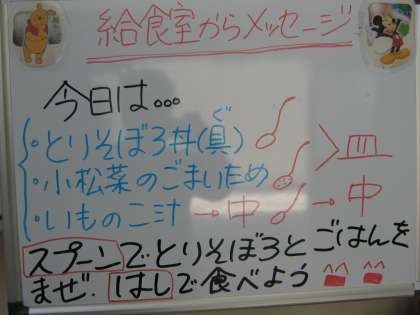 給食室からメッセージ
今日は…
・とりそぼろ丼(具) ぐ
・小松菜のごまいため > 皿
・いものこ汁 → 中 → 中
スプーンでとりそぼろとごはんを
まぜ、はしで食べよう